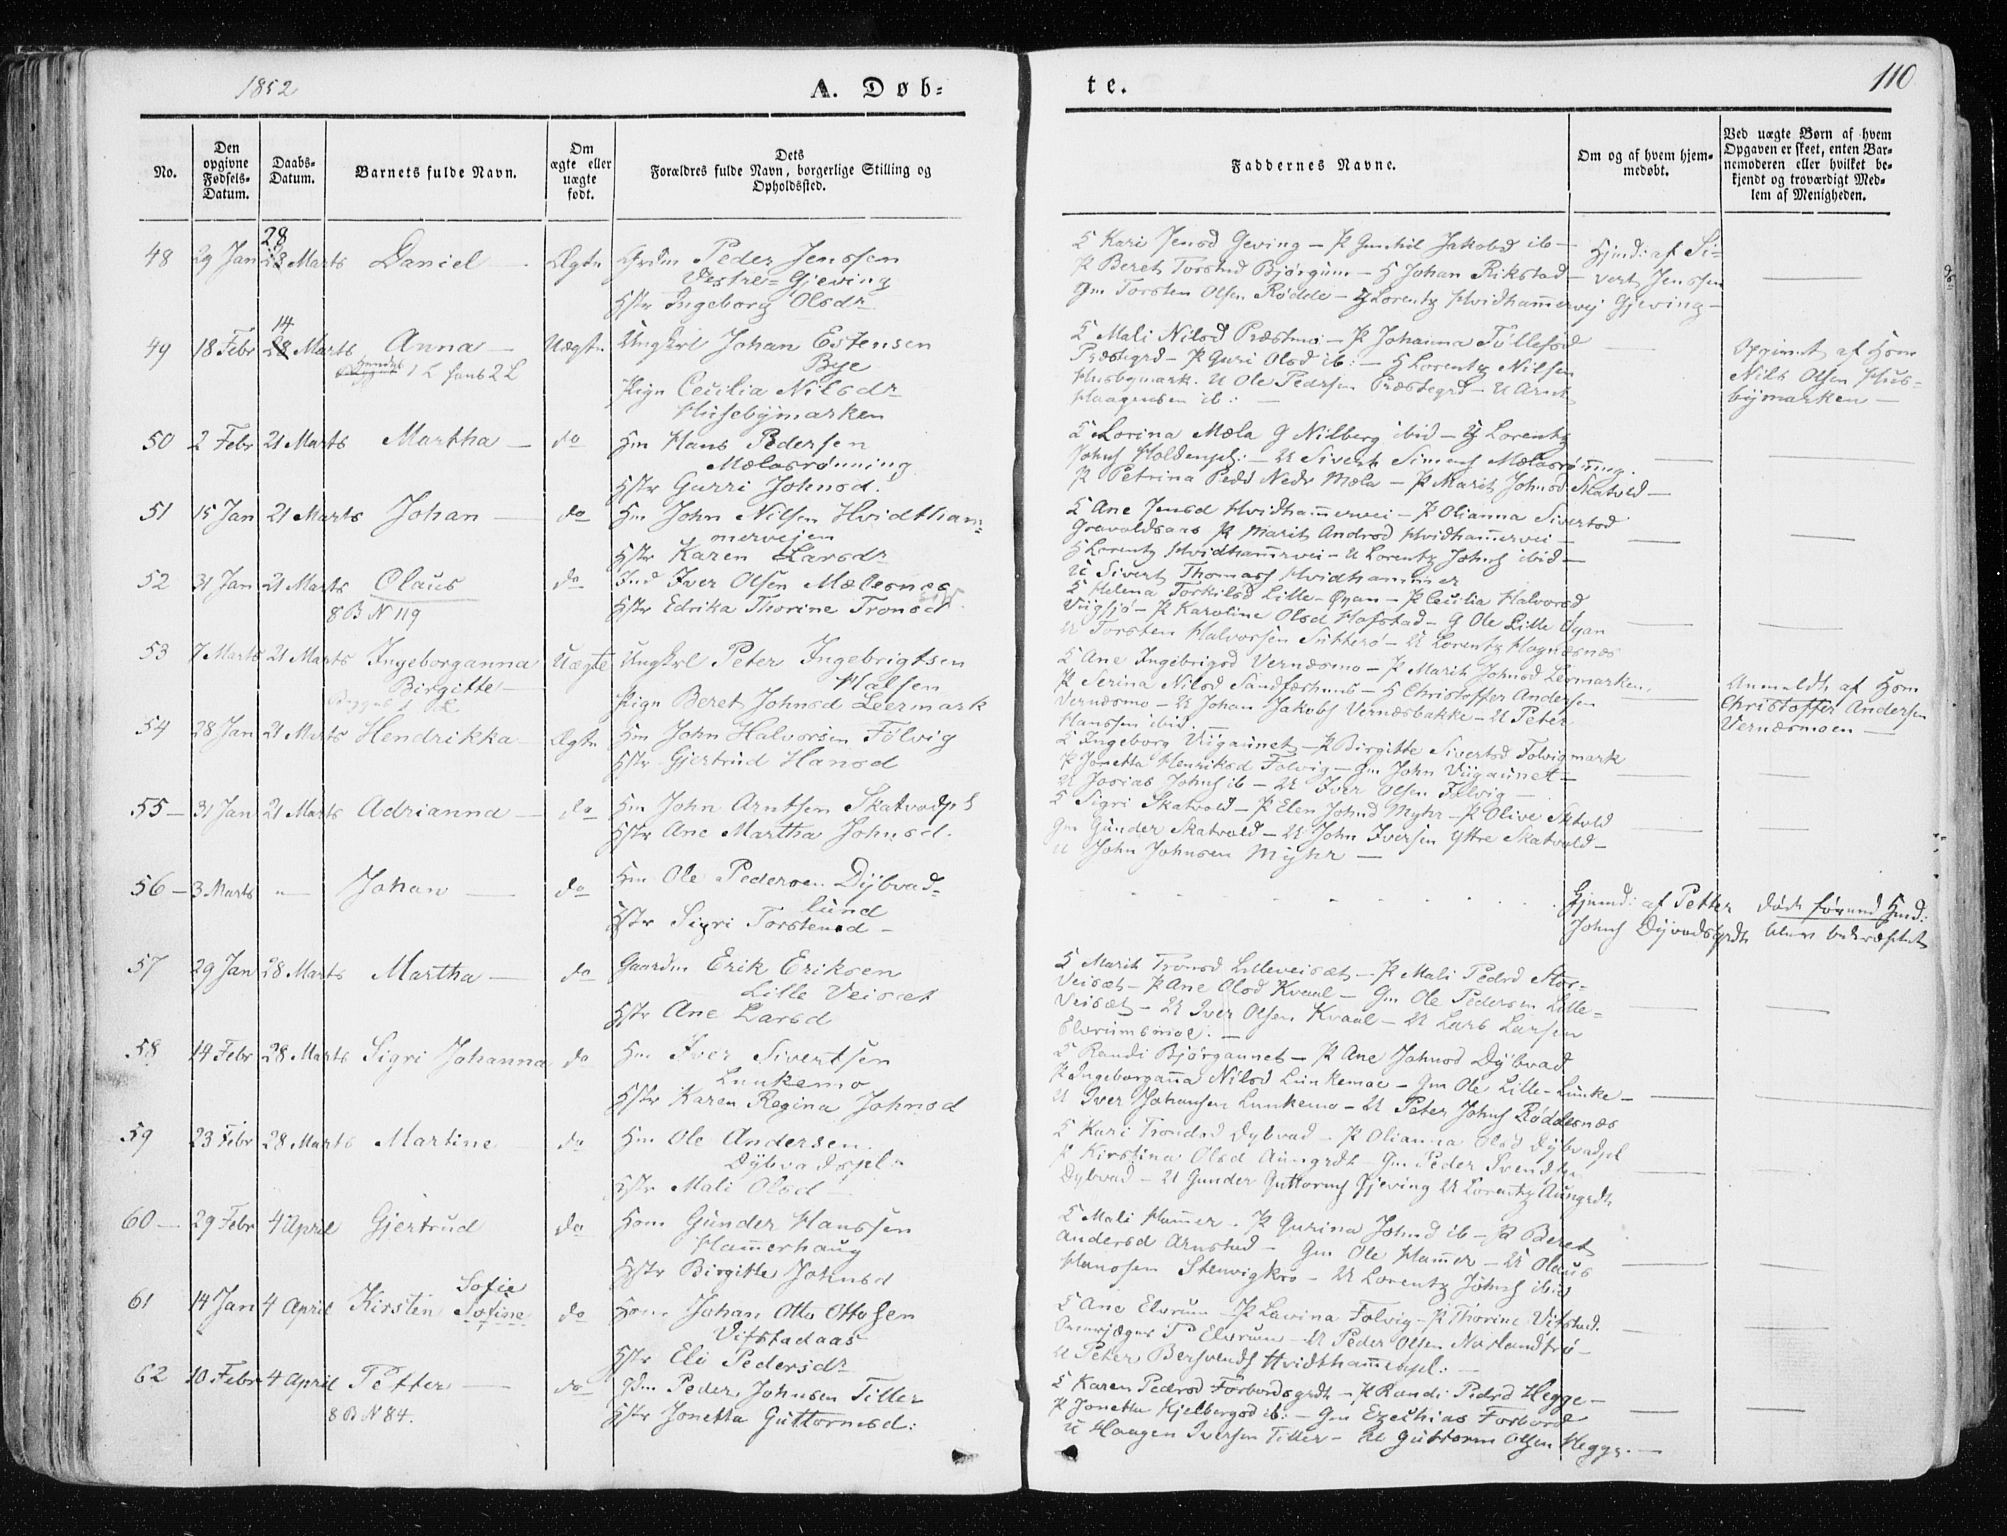 1852
A. Døb-
te.
110
No.
Den opgivne Fødsels-Datum.
Daabs-Datum.
Barnets fulde Navn.
Om ægte eller uægte født.
Dets Forældres fulde Navn, borgerlige Stilling og Opholdssted.
Faddernes Navne.
Om og af hvem hjem-medøbt.
Ved uægte Børn af hvem Opgaven er skeet, enten Bar-nemoderen eller hvilket be-kjendt og troværdigt Med-lem af Menigheden.
28
48 29 Jan 28 Marts Daniel — Ægte Grdm Peder Jenssen
Vestre-Gjeving
Hstr Ingeborg Olsdr
K Kari Jensd Geving — P Gunhil Jakobsd ib —
P Beret Torstsd Bjørgum — H Johan Rikstad —
Gm Torsten Olsen Rødde — Lorentz Hvidhammervej
Hjmd: af Si-
vert Jenssen
Gjeving —
14
49 18 Febr 28 Marts Anna — Uægte Ungkrl Johan Estensen
Bye
1 L hans 2 L
Pign Cecilia Nilsdr
Husebymarken
K Mali Nilsd Præstmo — P Johanna Tøllefsd
Præstegrd — P Guri Olsd ib: — H Lorentz Nilsen
Husbymark. U Ole Pedersen Præstegrd — U Arnt
Haagensen ib: —
Opgivet af Hsm
Nils Olsen Hus-
bymarken —
50 2 Febr 21 Marts Martha — do Hm Hans Pedersen
Mælasrønning
Hstr Gurri Johnsd.
K Lorina Mæla G Nilberg ibid — Lorentz
— U Sivert Simens Mælasrønning.
P Petrina Peds Nedr Mæla — P Marit Johnsd Skatvold —
51 15 Jan 21 Marts Johan — do Hm John Nilsen Hvidtham-
mervejen
Hstr Karen Larsdr
K Ane Jensd Hvidhammervei — P Olianna Sivertsd
P Marit Andrsd Hvidhammervei —
H Lorentz Hvidhammervei — U Lorentz Johns ibid —
U Sivert Thomass Hvidhammer
52 31 Jan 21 Marts Olaus do Ind Iver Olsen Mælesnes
8 B N 119
Hstr Edrika Thorine Tronsd
K Helena Torkilsd Lille-Øyan — P Cecilia Halvorsd
— P Karoline Olsd Hofstad — G Ole Lille Øyan
U Torsten Halvorsen Sutterø — U Lorentz Hognæsnæs
53 7 Marts 21 Marts Ingeborganna Uægte Ungkrl Peter Ingebrigtsen
Birgitte —
Halsen
Pign Beret Johnsd Leermark
K Ane Ingebrigsd Vernæsmo — P Marit Johnsd Lermarken,
P Serina Nilsd Sandfærhus — H Christoffer Andersen
Vernæsmo — U Johan Jakobs Vernæsbakke — U Peter
Hanssen ibid. —
Anmeldt af Hsm
Christoffer Andersen
Vernæsmoen —
54 28 Jan 21 Marts Hendrikka Ægte Hm John Halvorsen Følvig
Hstr Gjertrud Hansd
K Ingeborg Viigaunet — P Birgitte Sivertsd Folvigmark
P Jonetta Henriksd Folvig — Gm John Viigaunet —
U Josias Johns ib — U Iver Olsen Følvig —
55 — 31 Jan 21 Marts Adrianna — do Hm John Arntsen Skatvadpl
Hstr Ane Martha Johnsd.
K Sigri Skatvold — P Elen Johnd Myhr — P Olive Sktvld
Gm Gunder Skatvold — U John Iversen Yttre Skatvold —
U John Johnsen Myhr —
56 — 3 Marts " — Johan — do Hm Ole Pedersen Dybvad-
lund
Hstr Sigri Torstensd —
Hjemd: af Petter
Johns Dyvadsgrdt
død førend Hmd:
blev bekræftet
57 29 Jan 28 Marts Martha — do Gaardm Erik Eriksen
Lille Veisæt
Hstr Ane Larsd
K Marit Tronsd Lilleveisæt — P Mali Pedrsd Stor-
Veisæt — P Ane Olsd Kvaal — Gm Ole Pedersen Lille-
Veisæt — U Iver Olsen Kvaal — U Lars Larsen
Elvrumsmoe. —
58 14 Febr 28 Marts Sigri Johanna do Hm Iver Sivertsen
Lunkemo
Hstr Karen Regina Johnsd
K Randi Bjørgaunet — P Ane Johnsd Dybvad
P Ingeborganna Nilsd Lunkemoe — Gm Ole Lille-Lunke —
U Iver Johansen Lunkemo — U Peter Johns Røddesnæs
59 23 Febr 28 Marts Martine do Hm Ole Andersen
Dybvadspl
Hstr Mali Olsd —
K Kari Trondsd Dybvad — P Olianna Olsd Dybvadpl
P Kirstina Olsd Aungrdt — Gm Peder Svendsen
Dybvad — U Gunder Guttorms Gjeving U Lorentz Aungrdt
60 — 29 Febr 4 April Gjertrud do Hsm Gunder Hanssen
Hammerhaug
Hstr Birgitte Johnsd
K Mali Hammer — P Gurina Johnd ib — P Beret
Andersd Arnstad — Gm Ole Hammer — U Olaus
Hanssen Stenvigkro — U Lorentz Johns ibid
Sofie
61 14 Jan 4 April Kirsten Sofine do Hsm Johan Otto Ottosen
Vifstadaas
Hstr Eli Pedersdr
K Ane Elvrum — P Lavina Folvig — P Thorine Vifstad.
P Elvrum — U Peder Olsen Norlandtrø —
U Peter Bersvends Hvidthammerpl: —
62 10 Febr 4 April Petter — do Gdm Peder Johnsen Tiller
8 B N 84.
Hstr Jonetta Guttormsd:
K Karen Pedrsd Forbordsgrdt — P Randi Pedrd Hegge —
P Jonetta Kjelbergsd ib: — Gm Ezechias Forbord
U Haagen Iversen Tiller — U Guttorm Olsen Hegge. —